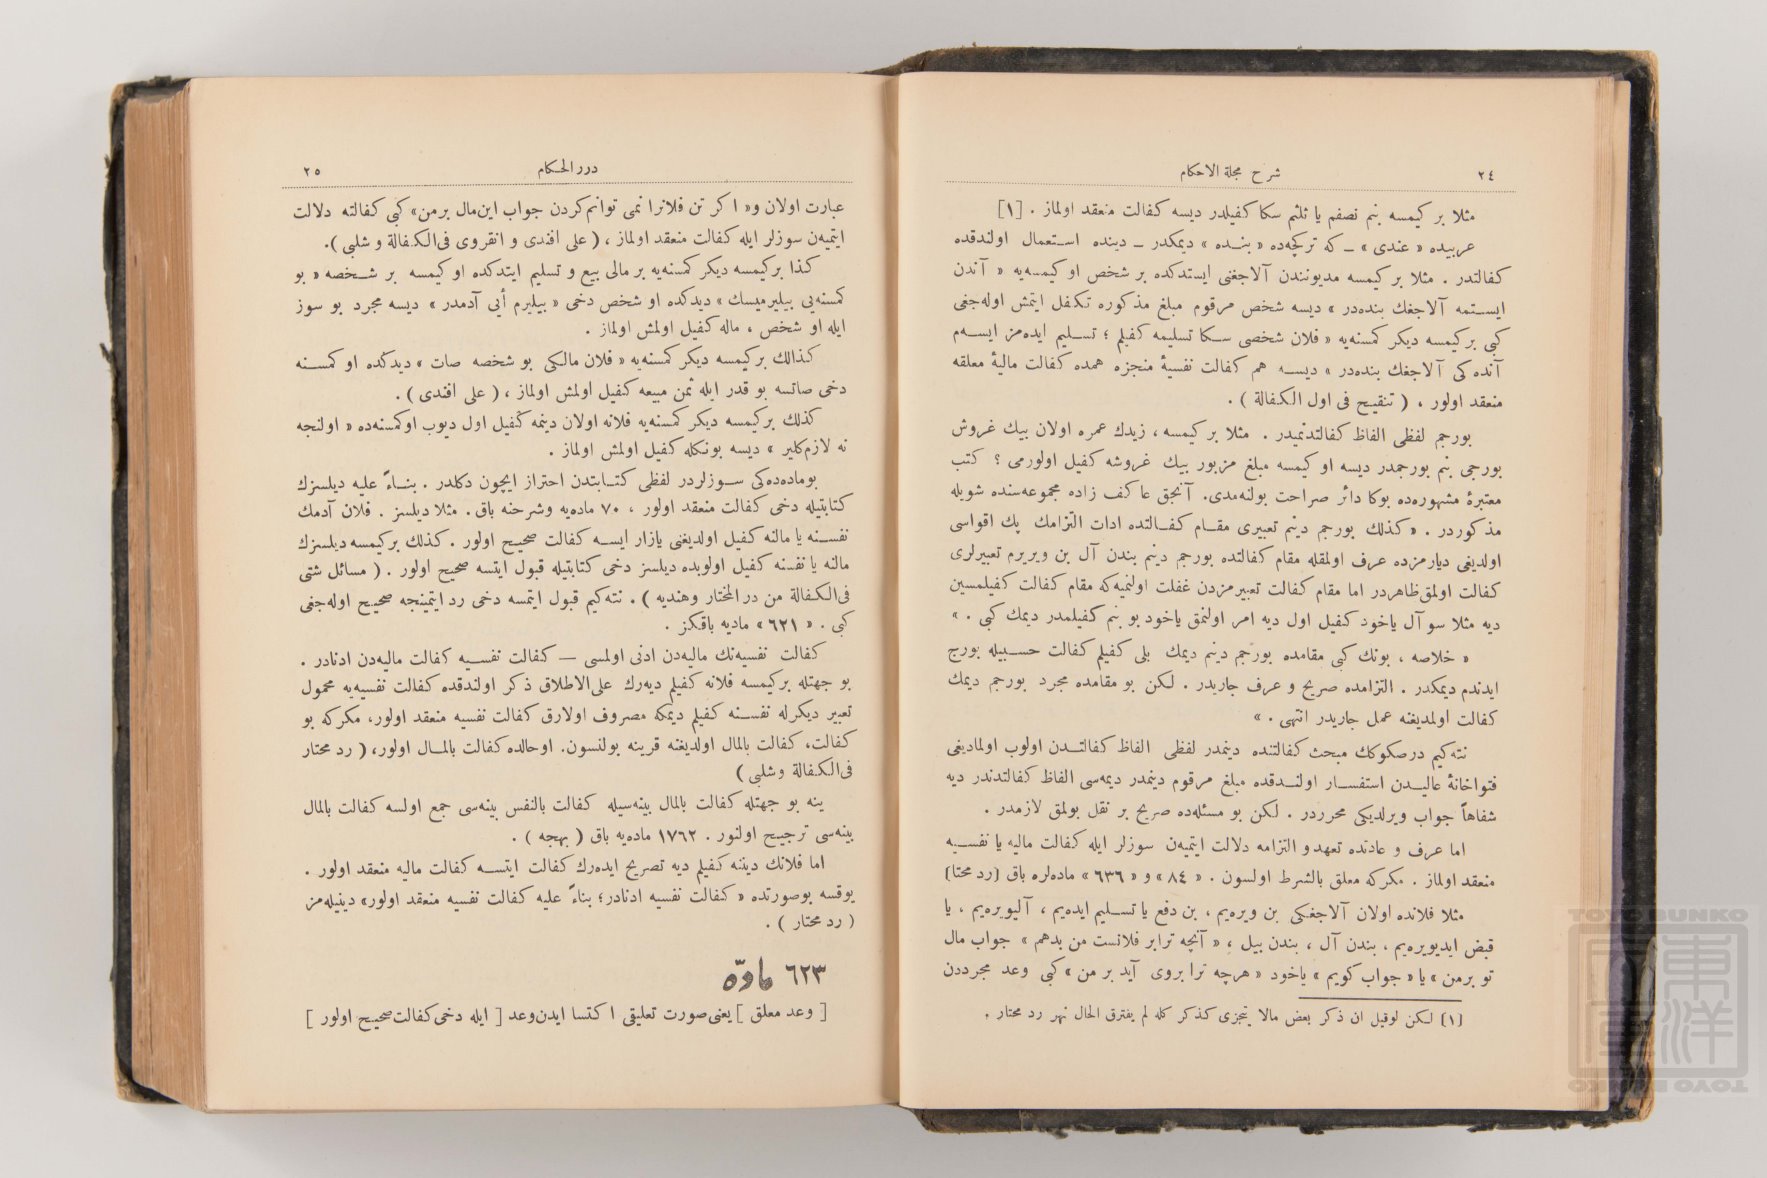 ٢٤ شرح مجلة الاحكام
مثلا بر كيمسه بنم نصفم يا ثلثم سكا كفيلدر ديسه كفالت منعقد اولماز . [١]
عربيده « عندى » ــ كه تركجه‌ده « بنــده » ديمكدر ــ دينده اســتعمال اولندقده
كفالتدر . مثلا بر كيمسه مديونندن آلاجغنى ايستدكده بر شخص او كيمسه‌يه « آندن
ايســتمه آلاجغك بنده‌در » ديسه شخص مرقوم مبلغ مذكوره تكفل ايتمش اوله‌جغى
كبى بر كيمسه ديكر كمسنه‌يه « فلان شخصى ســكا تسليمه كفيلم ؛ تســليم ايده‌مز ايســه‌م
آنده كى آلاجغك بنده‌در » ديســه هم كفالت نفسيهٔ منجزه همده كفالت ماليهٔ معلقه
منعقد اولور ، ( تنقيح فى اول الكفالة ) .
بورجم لفظى الفاظ كفالتدنميدر . مثلا بر كيمسه ، زيدك عمره اولان بيك غروش
بورجى بنم بورجمدر ديسه او كيمسه مبلغ مزبور بيك غروشه كفيل اولورمى ؟ كتب
معتبرهٔ مشهوره‌ده بوكا دائر صراحت بولنه‌مدى. آنجق عاكف زاده مجموعه‌سنده شويله
مذكوردر . « كذلك بورجم دينم تعبيرى مقــام كفــالتده ادات التزامك پك اقواسى
اولديغى ديارمزده عرف اولمقله مقام كفالتده بورجم دينم بندن آل بن ويريرم تعبيرلرى
كفالت اولمق ظاهردر اما مقام كفالت تعبيرمزدن غفلت اولنميه‌كه مقام كفالت كفيلمسين
ديه مثلا سوآل ياخود كفيل اول ديه امر اولنمق ياخود بو بنم كفيلمدر ديمك كبى . »
« خلاصه ، بونك كبى مقامده بورجم دينم ديمك بلى كفيلم كفالت حســبيله بورج
ايدندم ديمكدر . التزامده صريح و عرف جاريدر . لكن بو مقامده مجرد بورجم ديمك
كفالت اولمديغنه عمل جاريدر انتهى . »
نته‌كيم درصكوكك مبحث كفالتنده دينمدر لفظى الفاظ كفالتــدن اولوب اولماديغى
فتواخانهٔ عاليــدن استفســار اولنــدقده مبلغ مرقوم دينمدر ديمه‌سى الفاظ كفالتدندر ديه
شفاهاً جواب ويرلديكى محرردر . لكن بو مسئله‌ده صريح بر نقل بولمق لازمدر .
اما عرف و عادتده تعهد و التزامه دلالت ايتميه‌ن سوزلر ايله كفالت ماليه يا نفســيه
منعقد اولماز . مكركه معلق بالشرط اولسون . « ٨٤ » و « ٦٣٦ » ماده‌لره باق (رد محتا)
مثلا فلانده اولان آلاجغكى بن ويره‌يم ، بن دفع يا تســليم ايده‌يم ، آليويره‌يم ، يا
قبض ايديويره‌يم ، بندن آل ، بندن بيل ، « آنچه ترابر فلانست من بدهم » جواب مال
تو برمن » يا « جواب كويم » ياخود « هرچه ترا بروى آيد بر من » كبى وعد مجرددن
(١) لكن لوقيل ان ذكر بعض مالا يتجزى كذكر كله لم يفترق الحال نهر رد محتار .
درر الحكام ٢٥
عبارت اولان و« ا كر تن فلانرا نمى توانم كردن جواب اين مال برمن» كبى كفالته دلالت
ايتميه‌ن سوزلر ايله كفالت منعقد اولماز ، ( على افندى و انقروى فى الكفالة و شلبى ).
كذا بر كيمسه ديكر كمسنه‌يه بر مالى بيع و تسليم ايتدكده او كيمسه بر شــخصه « بو
كمسنه‌يى بيليرميسك » ديدكده او شخص دخى « بيليرم أيى آدمدر » ديسه مجرد بو سوز
ايله او شخص ، ماله كفيل اولمش اولماز .
كذالك بر كيمسه ديكر كمسنه‌يه « فلان مالكى بو شخصه صات » ديدكده او كمســنه
دخى صاتسه بو قدر ايله ثمن مبيعه كفيل اولمش اولماز ، ( على افندى ) .
كذلك بر كيمسه ديكر كمسنه‌يه فلانه اولان دينمه كفيل اول ديوب اوكمسنه‌ده « اولنجه
نه لازم كلير » ديسه بونكله كفيل اولمش اولماز .
بوماده‌ده‌كى ســوزلردر لفظى كتــابتدن احتراز ايچون دكلدر . بنــاءً عليه ديلسزك
كتابتيله دخى كفالت منعقد اولور ، ٧٠ ماده‌يه وشرحنه باق . مثلا ديلسز . فلان آدمك
نفســنه يا مالنه كفيل اولديغنى يازار ايســه كفالت صحيح اولور . كذلك بر كيمسه ديلسزك
مالنه يا نفسنه كفيل اولوبده ديلسز دخى كتابتيله قبول ايتسه صحيح اولور . ( مسائل شتى
فى الكفالة من در المختار وهنديه ) . نته‌كيم قبول ايتمسه دخى رد ايتمينجه صحيح اوله‌جغى
كبى . « ٦٢١ » ماديه باقكز .
كفالت نفسيه‌نك ماليه‌دن ادنى اولمسى — كفالت نفســيه كفالت ماليه‌دن ادنادر .
بو جهتله بركيمسه فلانه كفيلم ديه‌رك على الاطلاق ذكر اولندقده كفالت نفسيه‌يه محمول
تعبير ديكرله نفســنه كفيلم ديمكه مصروف اولارق كفالت نفسيه منعقد اولور، مكركه بو
كفالت، كفالت بالمال اولديغنه قرينه بولنسون. اوحالده كفالت بالمــال اولور، ( رد محتار
فى الكفالة و شلبى )
ينه بو جهتله كفالت بالمال بينه‌سيله كفالت بالنفس بينه‌سى جمع اولسه كفالت بالمال
بينه‌سى ترجيح اولنور . ١٧٦٢ ماده‌يه باق ( بهجه ) .
اما فلانك ديننه كفيلم ديه تصريح ايده‌رك كفالت ايتســه كفالت ماليه منعقد اولور .
يوقسه بوصورتده « كفالت نفسيه ادنادر؛ بناءً عليه كفالت نفسيه منعقد اولور» دينيله‌مز
( رد محتار ) .
٦٢٣ مادّه
[ وعد معلق ] يعنى صورت تعليقى ا كتسا ايدن وعد [ ايله دخى كفالت صحيح اولور ]
TOYO BUNKO
東洋文庫
TOYO BUNKO